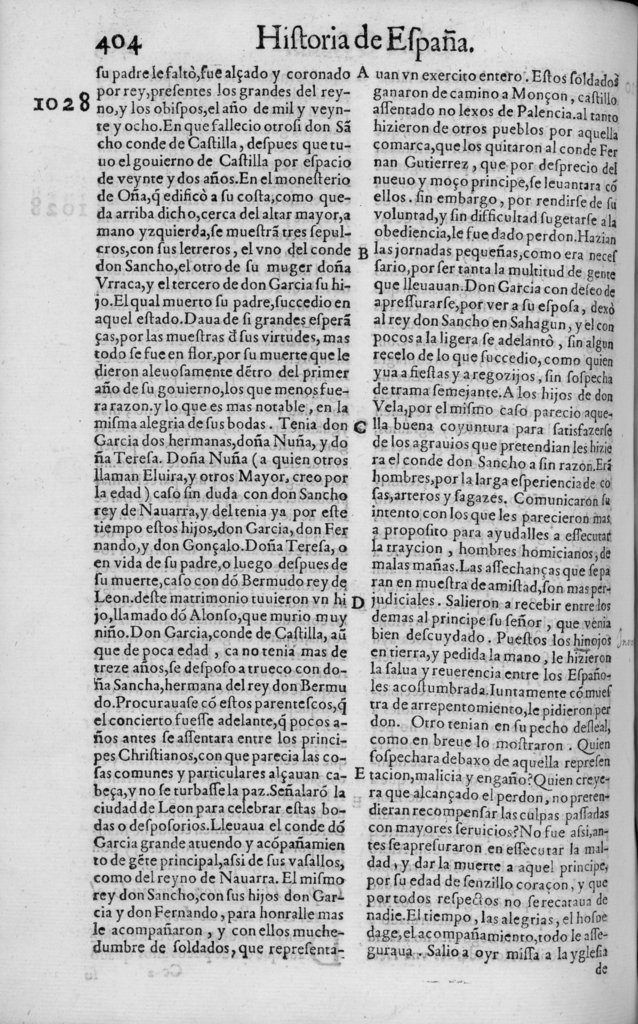 404 Historia de España.
su padre le faltò, fue alçado y coronado
por rey, presentes los grandes del rey-
1028
no, y los obispos, el año de mil y veyn-
te y ocho. En que fallecio otrosi don Sã
cho conde de Castilla, despues que tu-
uo el gouierno de Castilla por espacio
de veynte y dos años. En el monesterio
de Oña, q̃ edificò a su costa, como que-
da arriba dicho, cerca del altar mayor, a
mano yzquierda, se muestrã tres sepul-
cros, con sus letreros, el vno del conde
don Sancho, el otro de su muger doña
Vrraca, y el tercero de don Garcia su hi-
jo. El qual muerto su padre, succedio en
aquel estado. Daua de si grandes esperã
ças, por las muestras d̃ sus virtudes, mas
todo se fue en flor, por su muerte que le
dieron aleuosamente dẽtro del primer
año de su gouierno, los que menos fue-
ra razon. y lo que es mas notable, en la
misma alegria de sus bodas. Tenia don
Garcia dos hermanas, doña Nuña, y do
ña Teresa. Doña Nuña (a quien otros
llaman Eluira, y otros Mayor, creo por
la edad) caso sin duda con don Sancho
rey de Nauarra, y del tenia ya por este
tiempo estos hijos, don Garcia, don Fer
nando, y don Gonçalo. Doña Teresa, o
en vida de su padre, o luego despues de
su muerte, caso con dõ Bermudo rey de
Leon. deste matrimonio tuuieron vn hi
jo, llamado dõ Alonso, que murio muy
niño. Don Garcia, conde de Castilla, aũ
que de poca edad, ca no tenia mas de
treze años, se desposo a trueco con do-
ña Sancha, hermana del rey don Bermu
do. Procurauase cõ estos parentescos, q̃
el concierto fuesse adelante, q̃ pocos a-
ños antes se assentara entre los princi-
pes Christianos, con que parecia las co-
sas comunes y particulares alçauan ca-
beça, y no se turbasse la paz. Señalarõ la
ciudad de Leon para celebrar estas bo-
das o desposorios. Lleuaua el conde dõ
Garcia grande atuendo y acõpañamien
to de gẽte principal, assi de sus vasallos,
como del reyno de Nauarra. El mismo
rey don Sancho, con sus hijos don Gar-
cia y don Fernando, para honralle mas
le acompañaron, y con ellos muche-
dumbre de soldados, que representa-
A uan vn exercito entero. Estos soldados
ganaron de camino a Monçon, castillo
assentado no lexos de Palencia. al tanto
hizieron de otros pueblos por aquella
comarca, que los quitaron al conde Fer
nan Gutierrez, que por desprecio del
nueuo y moço principe, se leuantara cõ
ellos. sin embargo, por rendirse de su
voluntad, y sin difficultad sugetarse a la
obediencia, le fue dado perdon. Hazian
B las jornadas pequeñas, como era neces
sario, por ser tanta la multitud de gente
que lleuauan. Don Garcia con deseo de
apressurarse, por ver a su esposa, dexò
al rey don Sancho en Sahagun, y el con
pocos a la ligera se adelantò, sin algun
recelo de lo que succedio, como quien
yua a fiestas y a regozijos, sin sospecha
de trama semejante. A los hijos de don
Vela, por el mismo caso pareciò aque-
C lla buena coyuntura para satisfazerse
de los agrauios que pretendian les hizie
ra el conde don Sancho a sin razon. Erã
hombres, por la larga esperiencia de co
sas, arteros y sagazes. Comunicaron su
intento con los que les parecieron mas
a proposito para ayudalles a effecutar
la traycion, hombres homicianos, de
malas mañas. Las assechanças que se pa
ran en muestra de amistad, son mas per-
D judiciales. Salieron a recebir entre los
demas al principe su señor, que venia
bien descuydado. Puestos los hinojos
en tierra, y pedida la mano, le hizieron
la salua y reuerencia entre los Españo-
les acostumbrada. Iuntamente cõ mues
tra de arrepentimiento, le pidieron per
don. Otro tenian en su pecho desleal,
como en breue lo mostraron. Quien
sospechara debaxo de aquella represen
E tacion, malicia y engaño? Quien creye-
ra que alcançado el perdon, no preten-
dieran recompensar las culpas passadas
con mayores seruicios? No fue assi, an-
tes se apresuraron en essecutar la mal-
dad, y dar la muerte a aquel principe,
por su edad de senzillo coraçon, y que
por todos respectos no se recataua de
nadie. El tiempo, las alegrias, el hospe
dage, el acompañamiento, todo le asse-
guraua. Salio a oyr missa a la yglesia
de